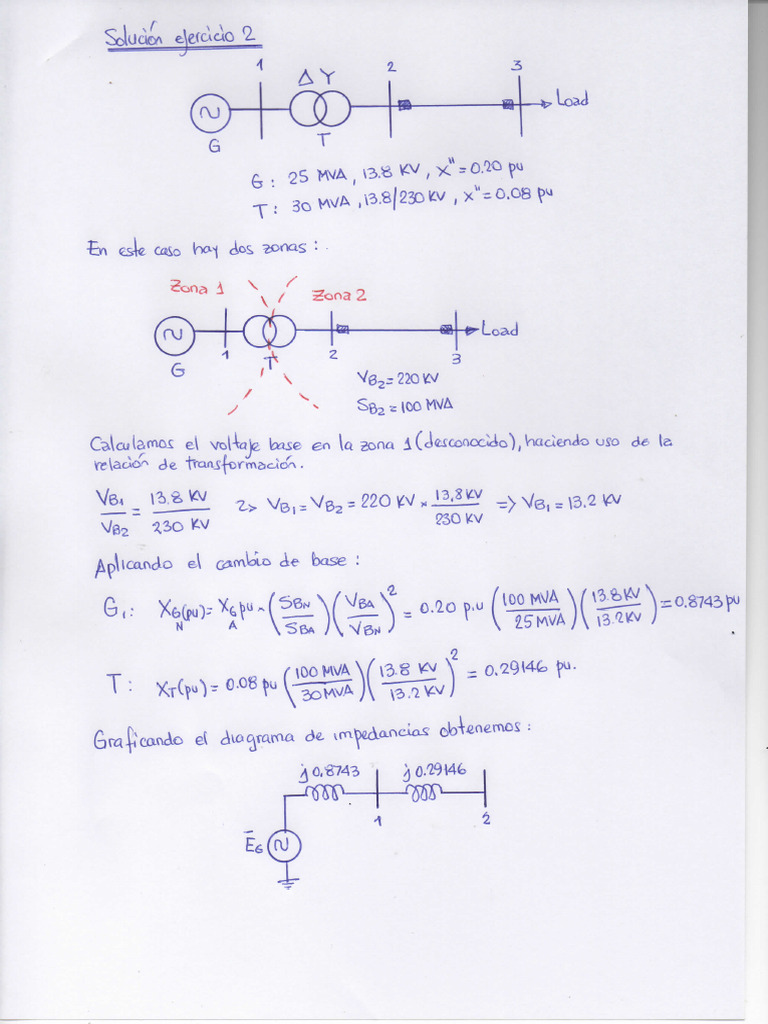 Solución ejercicio 2
1 Δ Y 2 3
Load
G T
G: 25 MVA, 13.8 KV, X" = 0.20 pu
T: 30 MVA, 13.8/230 KV, x" = 0.08 pu
En este caso hay dos zonas:
Zona 1 Zona 2
Load
G 1 T 2 3
VB2 = 220 KV
SB2 = 100 MVA
Calculamos el voltaje base en la zona 1 (desconocido), haciendo uso de la
relación de transformación.
VB1/VB2 = 13.8 KV/230 KV => VB1 = VB2 = 220 KV × 13,8 KV/230 KV => VB1 = 13.2 KV
Aplicando el cambio de base:
G1: XG(pu)N = XG pu A × (SBN/SBA)(VBA/VBN)² = 0.20 p.u (100 MVA/25 MVA)(13.8 KV/13.2 KV) = 0.8743 pu
T: XT(pu) = 0.08 pu (100 MVA/30 MVA)(13.8 KV/13.2 KV)² = 0.29146 pu.
Graficando el diagrama de impedancias obtenemos:
j0.8743 j0.29146
1 2
EG